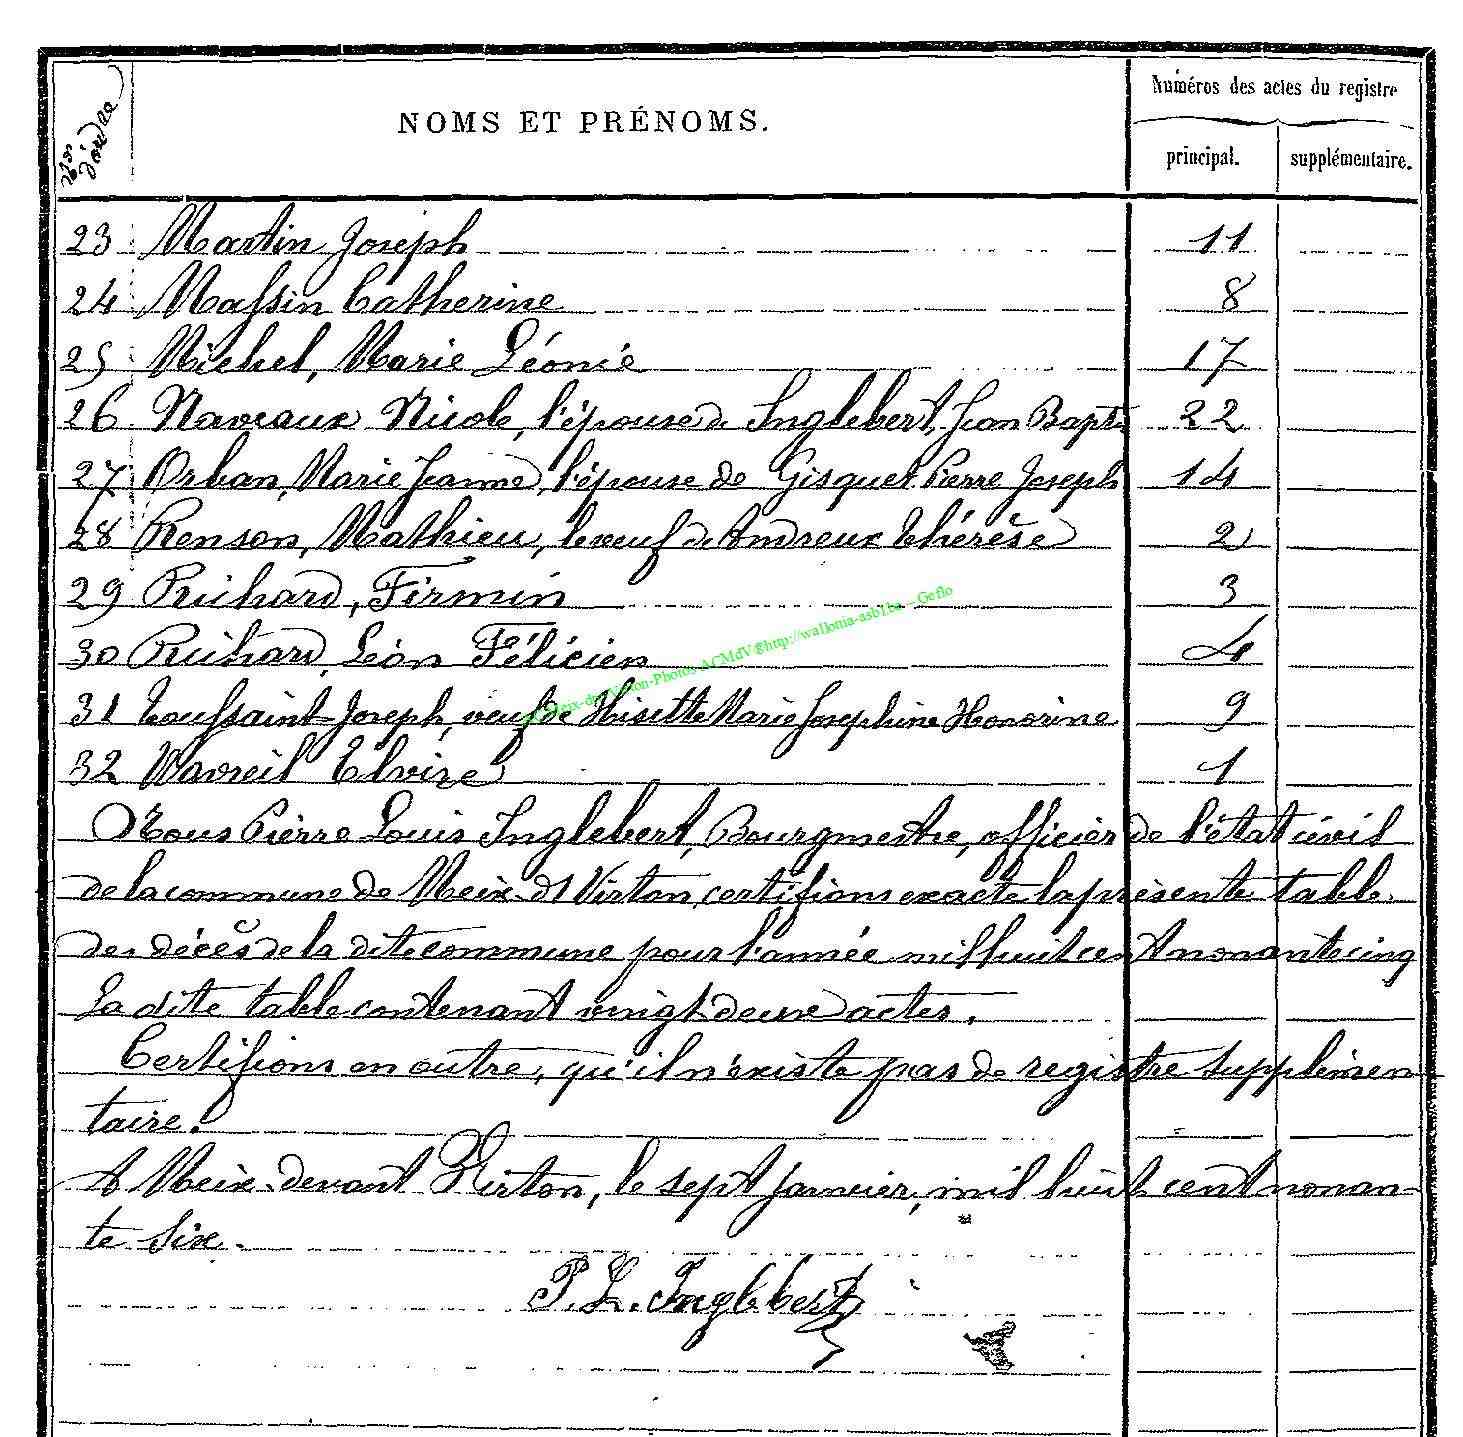 Nos d'ordre
NOMS ET PRÉNOMS.
Numéros des actes du registre
principal. supplémentaire.
23 Martin Joseph 11
24 Massin Catherine 8
25 Michel, Marie Léonie 17
26 Naveaux Nicole, l'épouse de Inglebert, Jean Bapte 22
27 Orban, Marie Jeanne, l'épouse de Gisquet Pierre Joseph 14
28 Renson, Mathieu, le veuf de Andreux Thérèse 2
29 Richard, Firmin 3
30 Richard, Léon Félicien 4
31 Toussaint Joseph, veuf de Thisette Marie Josephine Honorine 9
32 Wavreil Elvire 1
Nous Pierre Louis Inglebert, Bourgmestre, officier de l'état civil
de la commune de Meix-dt Virton, certifions exacte la présente table
des décès de la dite commune pour l'année mil huit cent nonante cinq
La dite table contenant vingt deux actes.
Certifions en outre, qu'il n'existe pas de registre supplémen
taire.
A Meix-devant Virton, le sept janvier, mil huit cent nonan-
te six.
P. L. Inglebert
-Photos-ACMdV@http://wallonia-asbl.be - Geflo